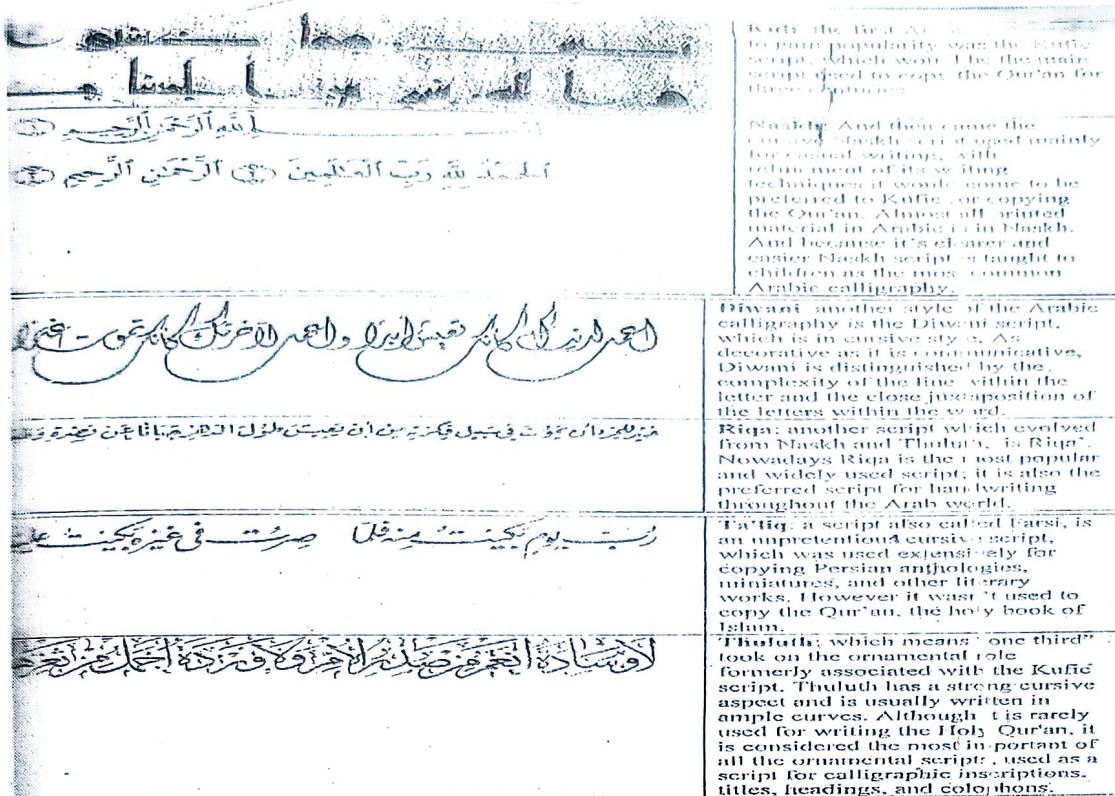 Kufi: the first
to gain popularity was the Kufic
script, which would be the main
script used to copy the Qur'an for
three centuries.
لله الرَّحْمَٰنِ الرَّحِيمِ
الحمد لله رَبِّ الْعَٰلَمِينَ الرَّحْمَٰنِ الرَّحِيمِ
Naskh: And then came the
cursive Naskh script used mainly
for casual writing, with
refinement of its writing
techniques it would come to be
preferred to Kufic for copying
the Qur'an. Almost all printed
material in Arabic is in Naskh.
And because it's clearer and
easier Naskh script is taught to
children as the most common
Arabic calligraphy.
اعمل لدنياك كأنك تعيش أبدا واعمل لآخرتك كأنك تموت غدا
Diwani another style of the Arabic
calligraphy is the Diwani script,
which is in cursive style. As
decorative as it is communicative,
Diwani is distinguished by the
complexity of the line within the
letter and the close juxtaposition of
the letters within the word.
خير للمرء أن يموت في سبيل فكرته من أن يعيش طول الدهر جبانا عن نصرة
Riqa: another script which evolved
from Naskh and Thuluth, is Riqa'.
Nowadays Riqa is the most popular
and widely used script; it is also the
preferred script for handwriting
throughout the Arab world.
رُبَّ يوم بكيت منه فلما صرت في غيره بكيت عليه
Ta'liq: a script also called Farsi, is
an unpretentious cursive script,
which was used extensively for
copying Persian anthologies,
miniatures, and other literary
works. However it wasn't used to
copy the Qur'an, the holy book of
Islam.
Thuluth; which means "one third"
took on the ornamental role
formerly associated with the Kufic
script. Thuluth has a strong cursive
aspect and is usually written in
ample curves. Although it is rarely
used for writing the Holy Qur'an, it
is considered the most important of
all the ornamental scripts, used as a
script for calligraphic inscriptions,
titles, headings, and colophons.